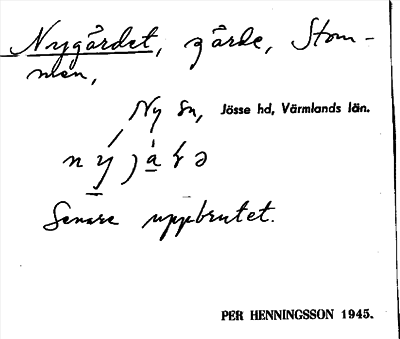 Nygärdet, gärde, Stom-
men,
Ny sn, Jösse hd, Värmlands län.
Senare uppbrutet.
PER HENNINGSSON 1945.